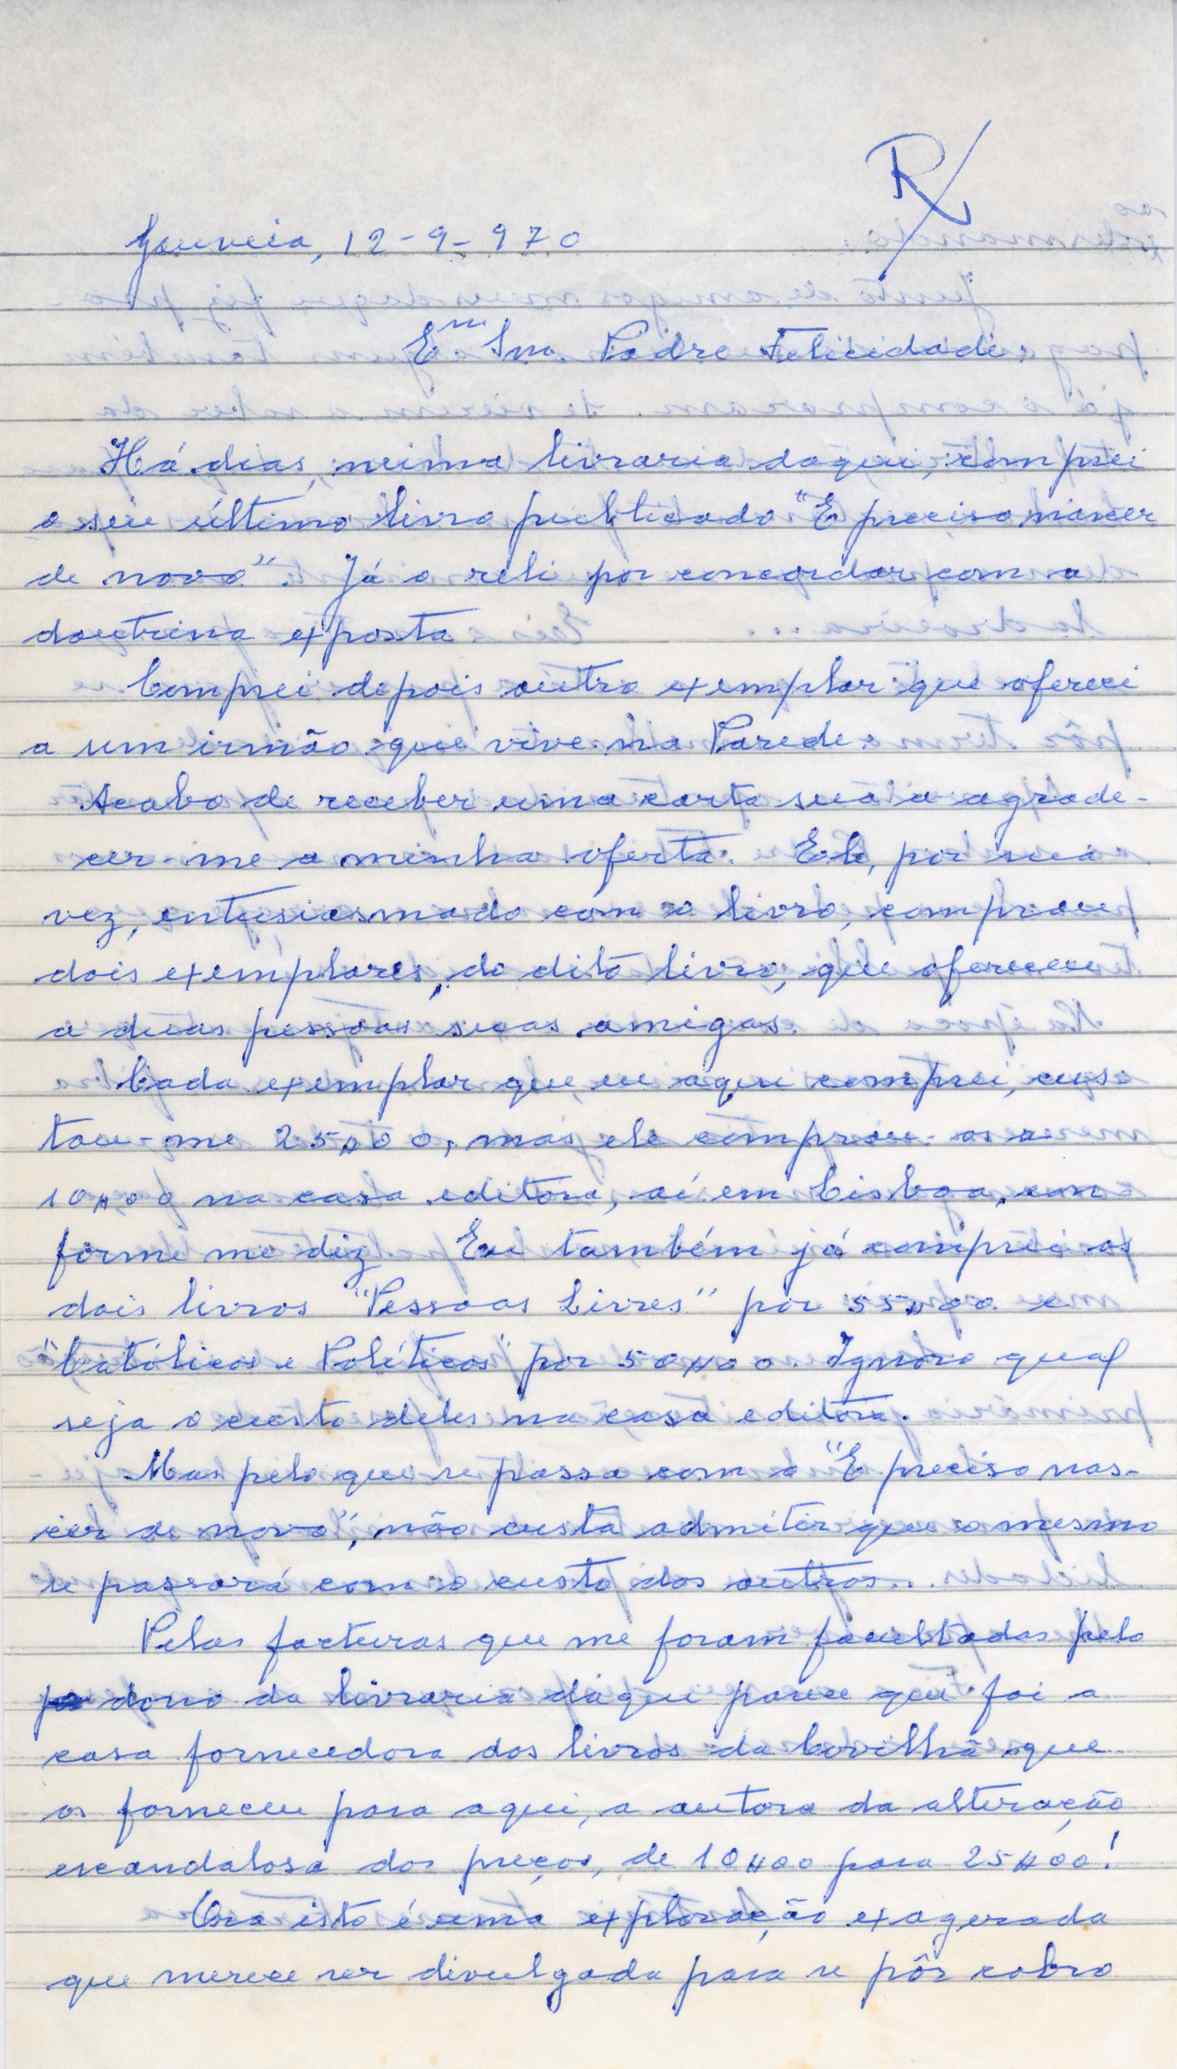 R
Gouveia, 12-9-970
Exm Snr. Padre Felicidade:
Há dias, numa livraria daqui, comprei
o seu último livro publicado "É preciso nascer
de novo". Já o reli por concordar com a
doutrina exposta.
Comprei depois outro exemplar que ofereci
a um irmão que vive na Parede.
Acabo de receber uma carta sua a agrade-
cer-me a minha oferta. Ele, por sua
vez, entusiasmado com o livro, comprou
dois exemplares, do dito livro, que ofereceu
a duas pessoas suas amigas.
Cada exemplar que eu aqui comprei, cus-
tou-me 25$00, mas ele comprou-os a
10$00 na casa editora, aí em Lisboa, con
forme me diz. Eu também já comprei os
dois livros "Pessoas Livres" por 55$00 e
"Católicos e Políticos" por 50$00. Ignoro qual
seja o custo deles na casa editora.
Mas pelo que se passa com o "É preciso nas-
cer de novo", não custa admitir que o mesmo
se passará com o custo dos outros.
Pelas facturas que me foram facultadas pelo
dono da livraria daqui parece que foi a
casa fornecedora dos livros da Covilhã que
os forneceu para aqui, a autora da alteração
escandalosa dos preços, de 10$00 para 25$00!
Ora isto é uma exploração exagerada
que merece ser divulgada para se pôr cobro